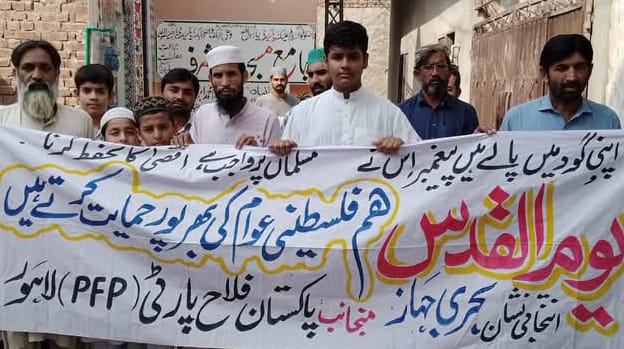 جامع مسجد
اپنی گود میں پالے ہیں پیغمبر اس نے مسلماں پر واجب ہے اقصیٰ کا تحفظ کرنا
یوم القدس
ہم فلسطینی عوام کی بھرپور حمایت کرتے ہیں
انتخابی نشان بحری جہاز منجانب پاکستان فلاح پارٹی (PFP) لاہور